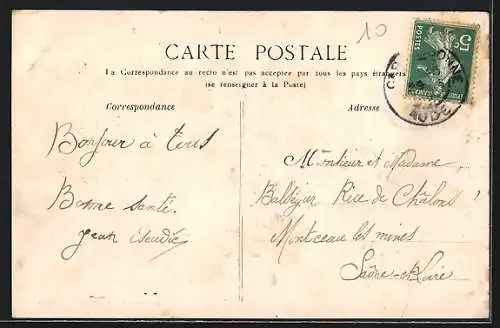 10
CARTE POSTALE
La Correspondance au recto n'est pas acceptée par tous les pays étrangers
(se renseigner à la Poste)
Correspondance
Adresse
5c
POSTES
AUDE
Bonjour à tous
Bonne santé.
Jean
Monsieur et Madame
Rue de Châlons
Montceau les mines
Saône-et-Loire